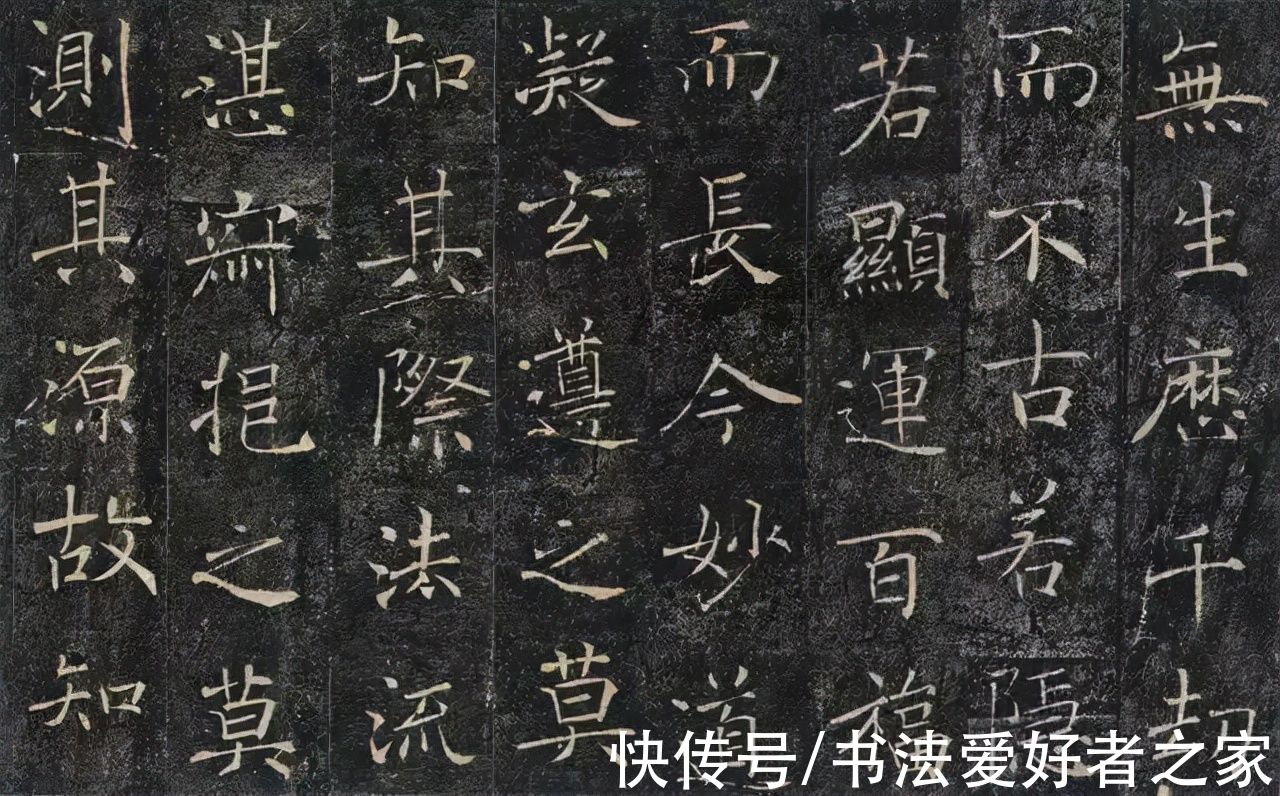 無生歷千劫
而不古若隱
若顯運百福
而長今妙道
凝玄遵之莫
知其際法流
湛寂挹之莫
測其源故知
快传号/书法爱好者之家